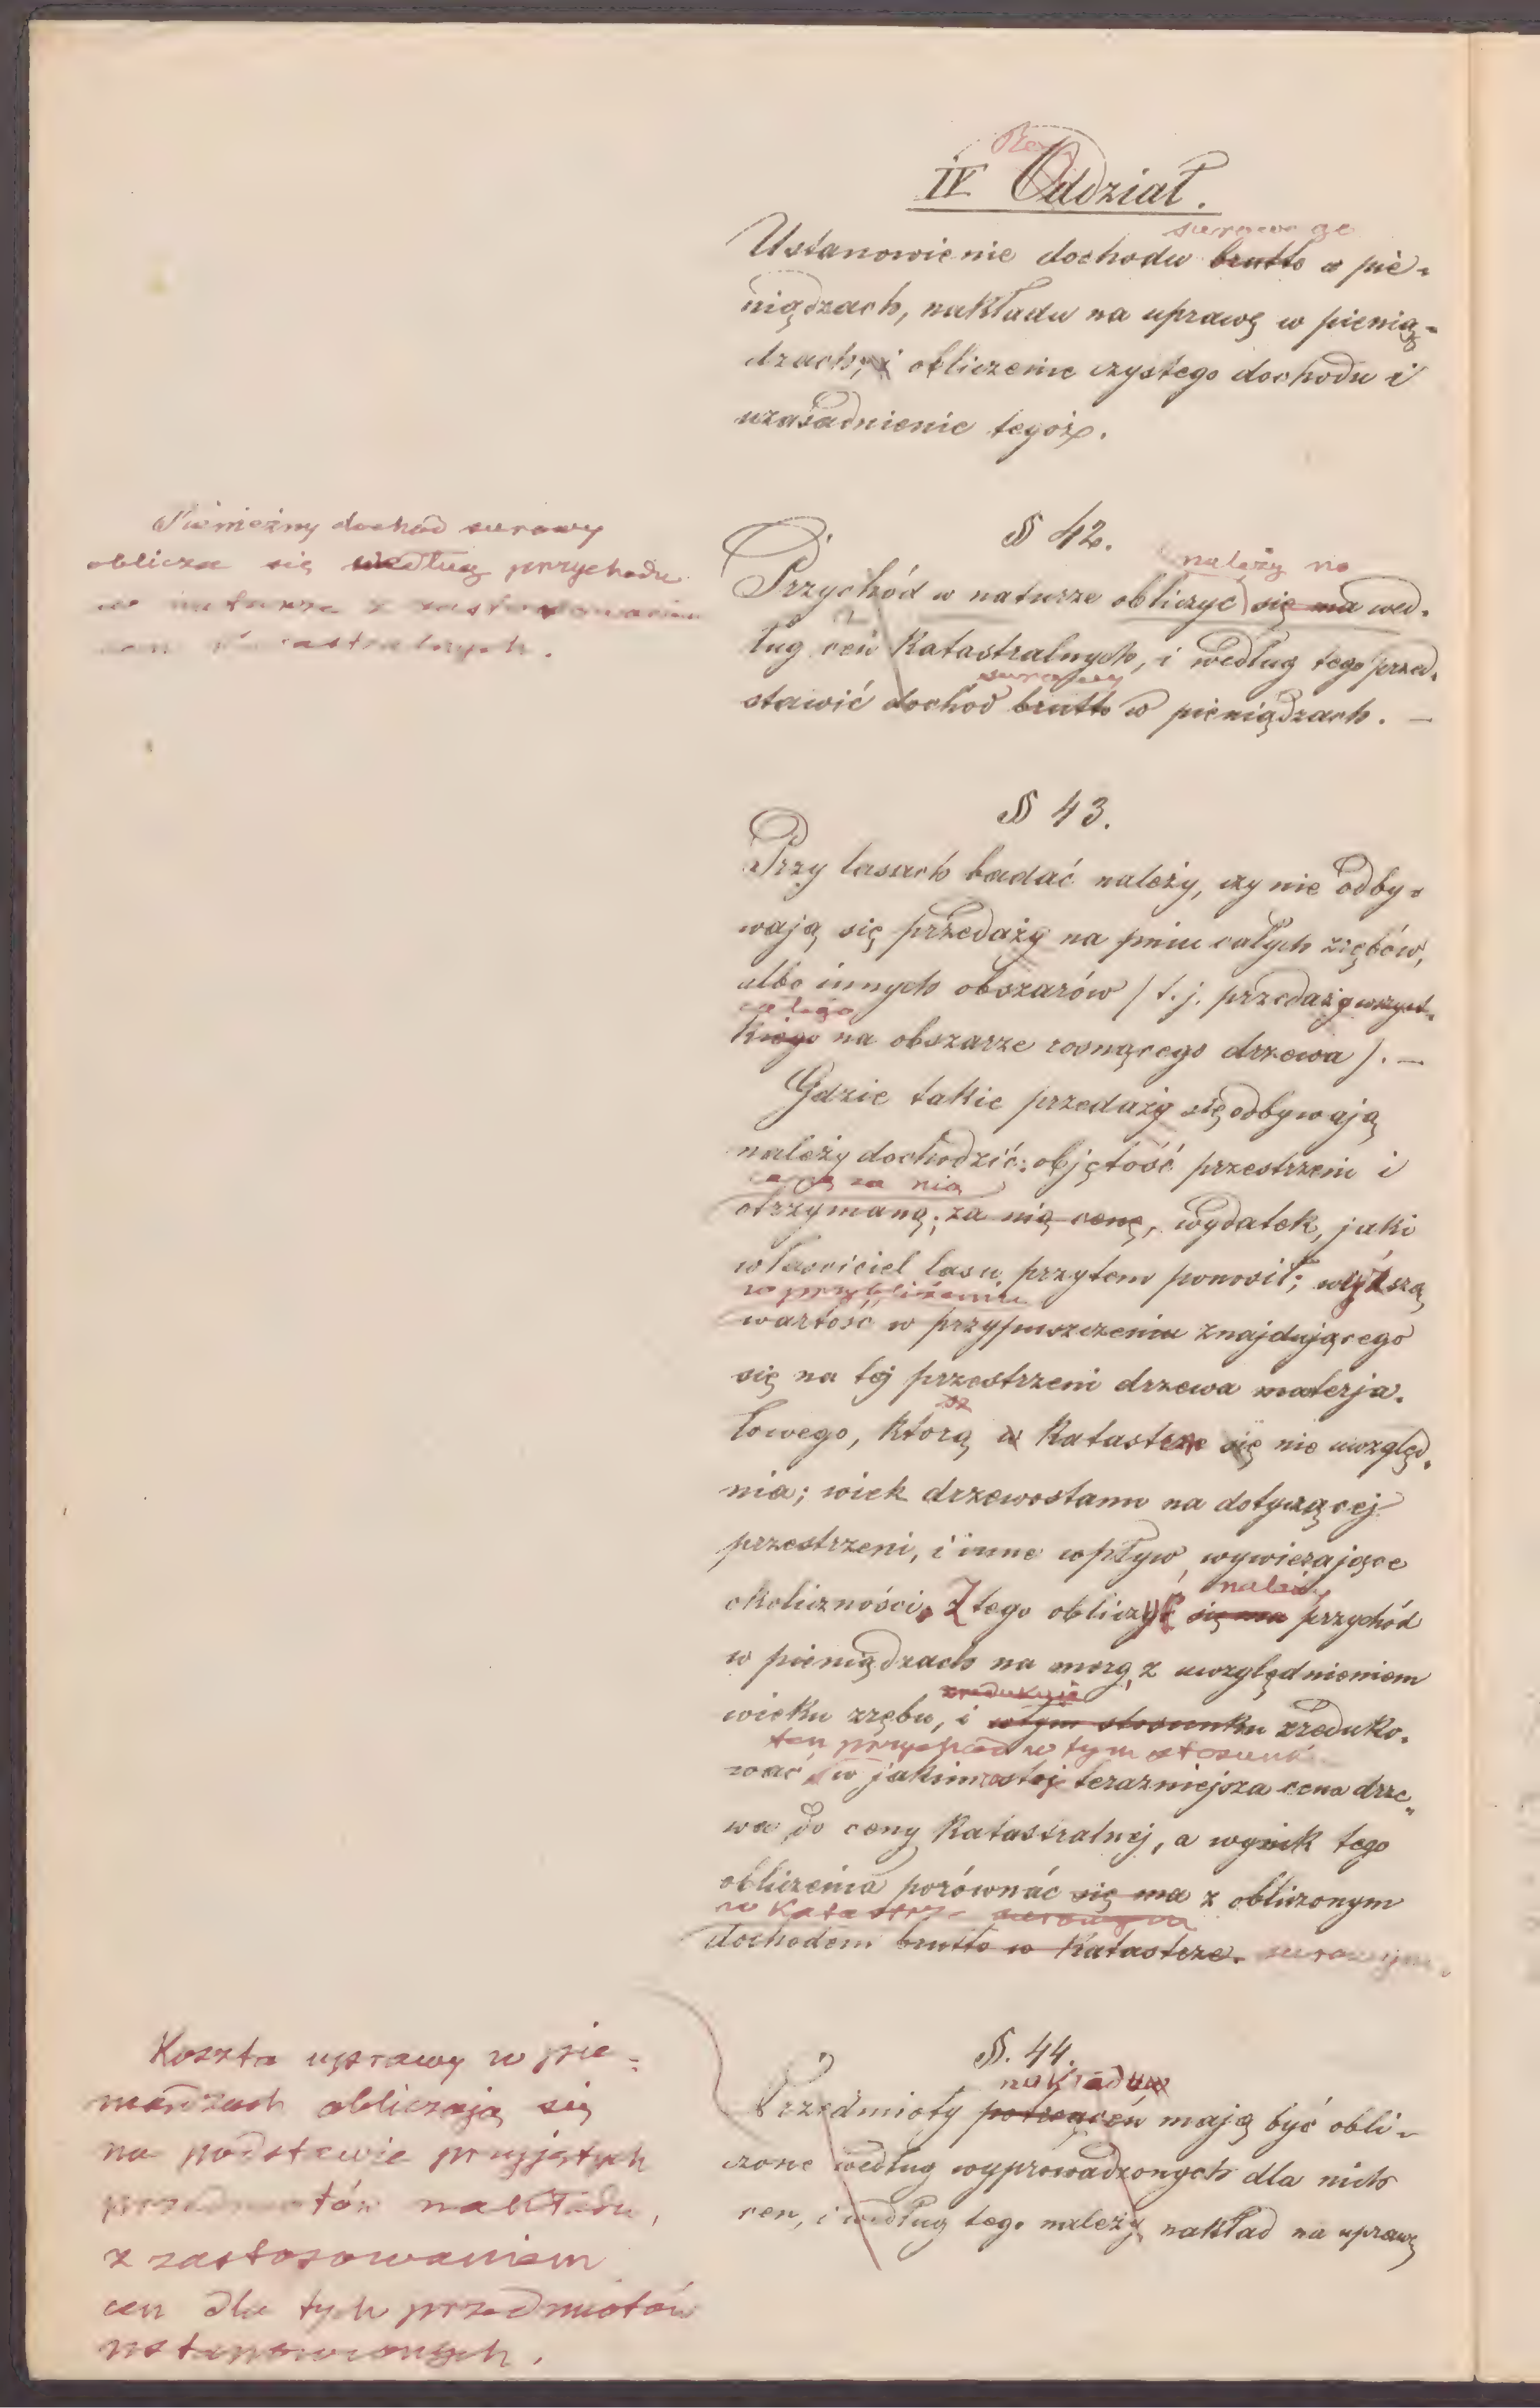 IV Oddział.
surowego
Ustanowienie dochodu brutto w pie-
niądzach, nakładu na uprawę w pienią-
dzach, i obliczenie czystego dochodu i
uzasadnienie tegoż.
Pieniężny dochód surowy
oblicza się według przychodu
w naturze z zastosowaniem
cen katastralnych.
§ 42.
należy
Przychód w naturze obliczyć się ma wed-
ług cen Katastralnych, i według tego przed-
surowy
stawić dochod brutto w pieniądzach. —
§ 43.
Przy lasach badać należy, czy nie odby-
wają się przedaży na pniu całych zrębów,
albo innych obszarów / t.j. przedaży wszyst-
całego
kiego na obszarze rosnącego drzewa /. —
Gdzie takie przedaży się odbywają
należy dochodzić: objętość przestrzeni i
cenę za nią
otrzymaną; za nią cenę, wydatek, jaki
właściciel lasu przytem ponosił; wyższą
w przybliżeniu
wartość w przypuszczeniu znajdującego
się na tej przestrzeni drzewa materja-
łowego, którą w Katastrze się nie uwzględ-
nia; wiek drzewostanu na dotyczącej
przestrzeni, i inne wpływ wywierające
należy
okoliczności. Z tego obliczyć się ma przychód
w pieniądzach na morg, z uwzględnieniem
zredukuje
wieku zrębu, i w tym stosunku zreduko-
ten przychód w tym stosunku
wać, w jakim stoj terazniejsza cena drze-
wa do ceny Katastralnej, a wynik tego
obliczenia porównać się ma z obliczonym
w Katastrze surowym
dochodem brutto w Katastrze. surowym.
Koszta uprawy w pie-
niądzach obliczają się
na podstawie przyjętych
przedmiotów nakładu,
z zastosowaniem
cen dla tych przedmiotów
ustanowionych.
§. 44.
nakładów
Przedmioty potrąceń mają być obli-
czone według wyprowadzonych dla nich
cen, i według tego należy nakład na uprawę